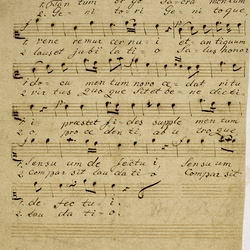 1. vene remur cer nu i et an tiquum
2. lauset Jubi la ti o Sa lus honor
1. do cu men tum novo ce dat ri tu
2. vir tus Quo que sit et be ne dic ti
1. i praestet fi des supple men tum
2. o pro ce den ti ab u tro que
1. Sensu um de fectu i Sensu um
2. Compar sit lau da ti o Compar sit
1. de fec tu i.
2. lau da ti o.